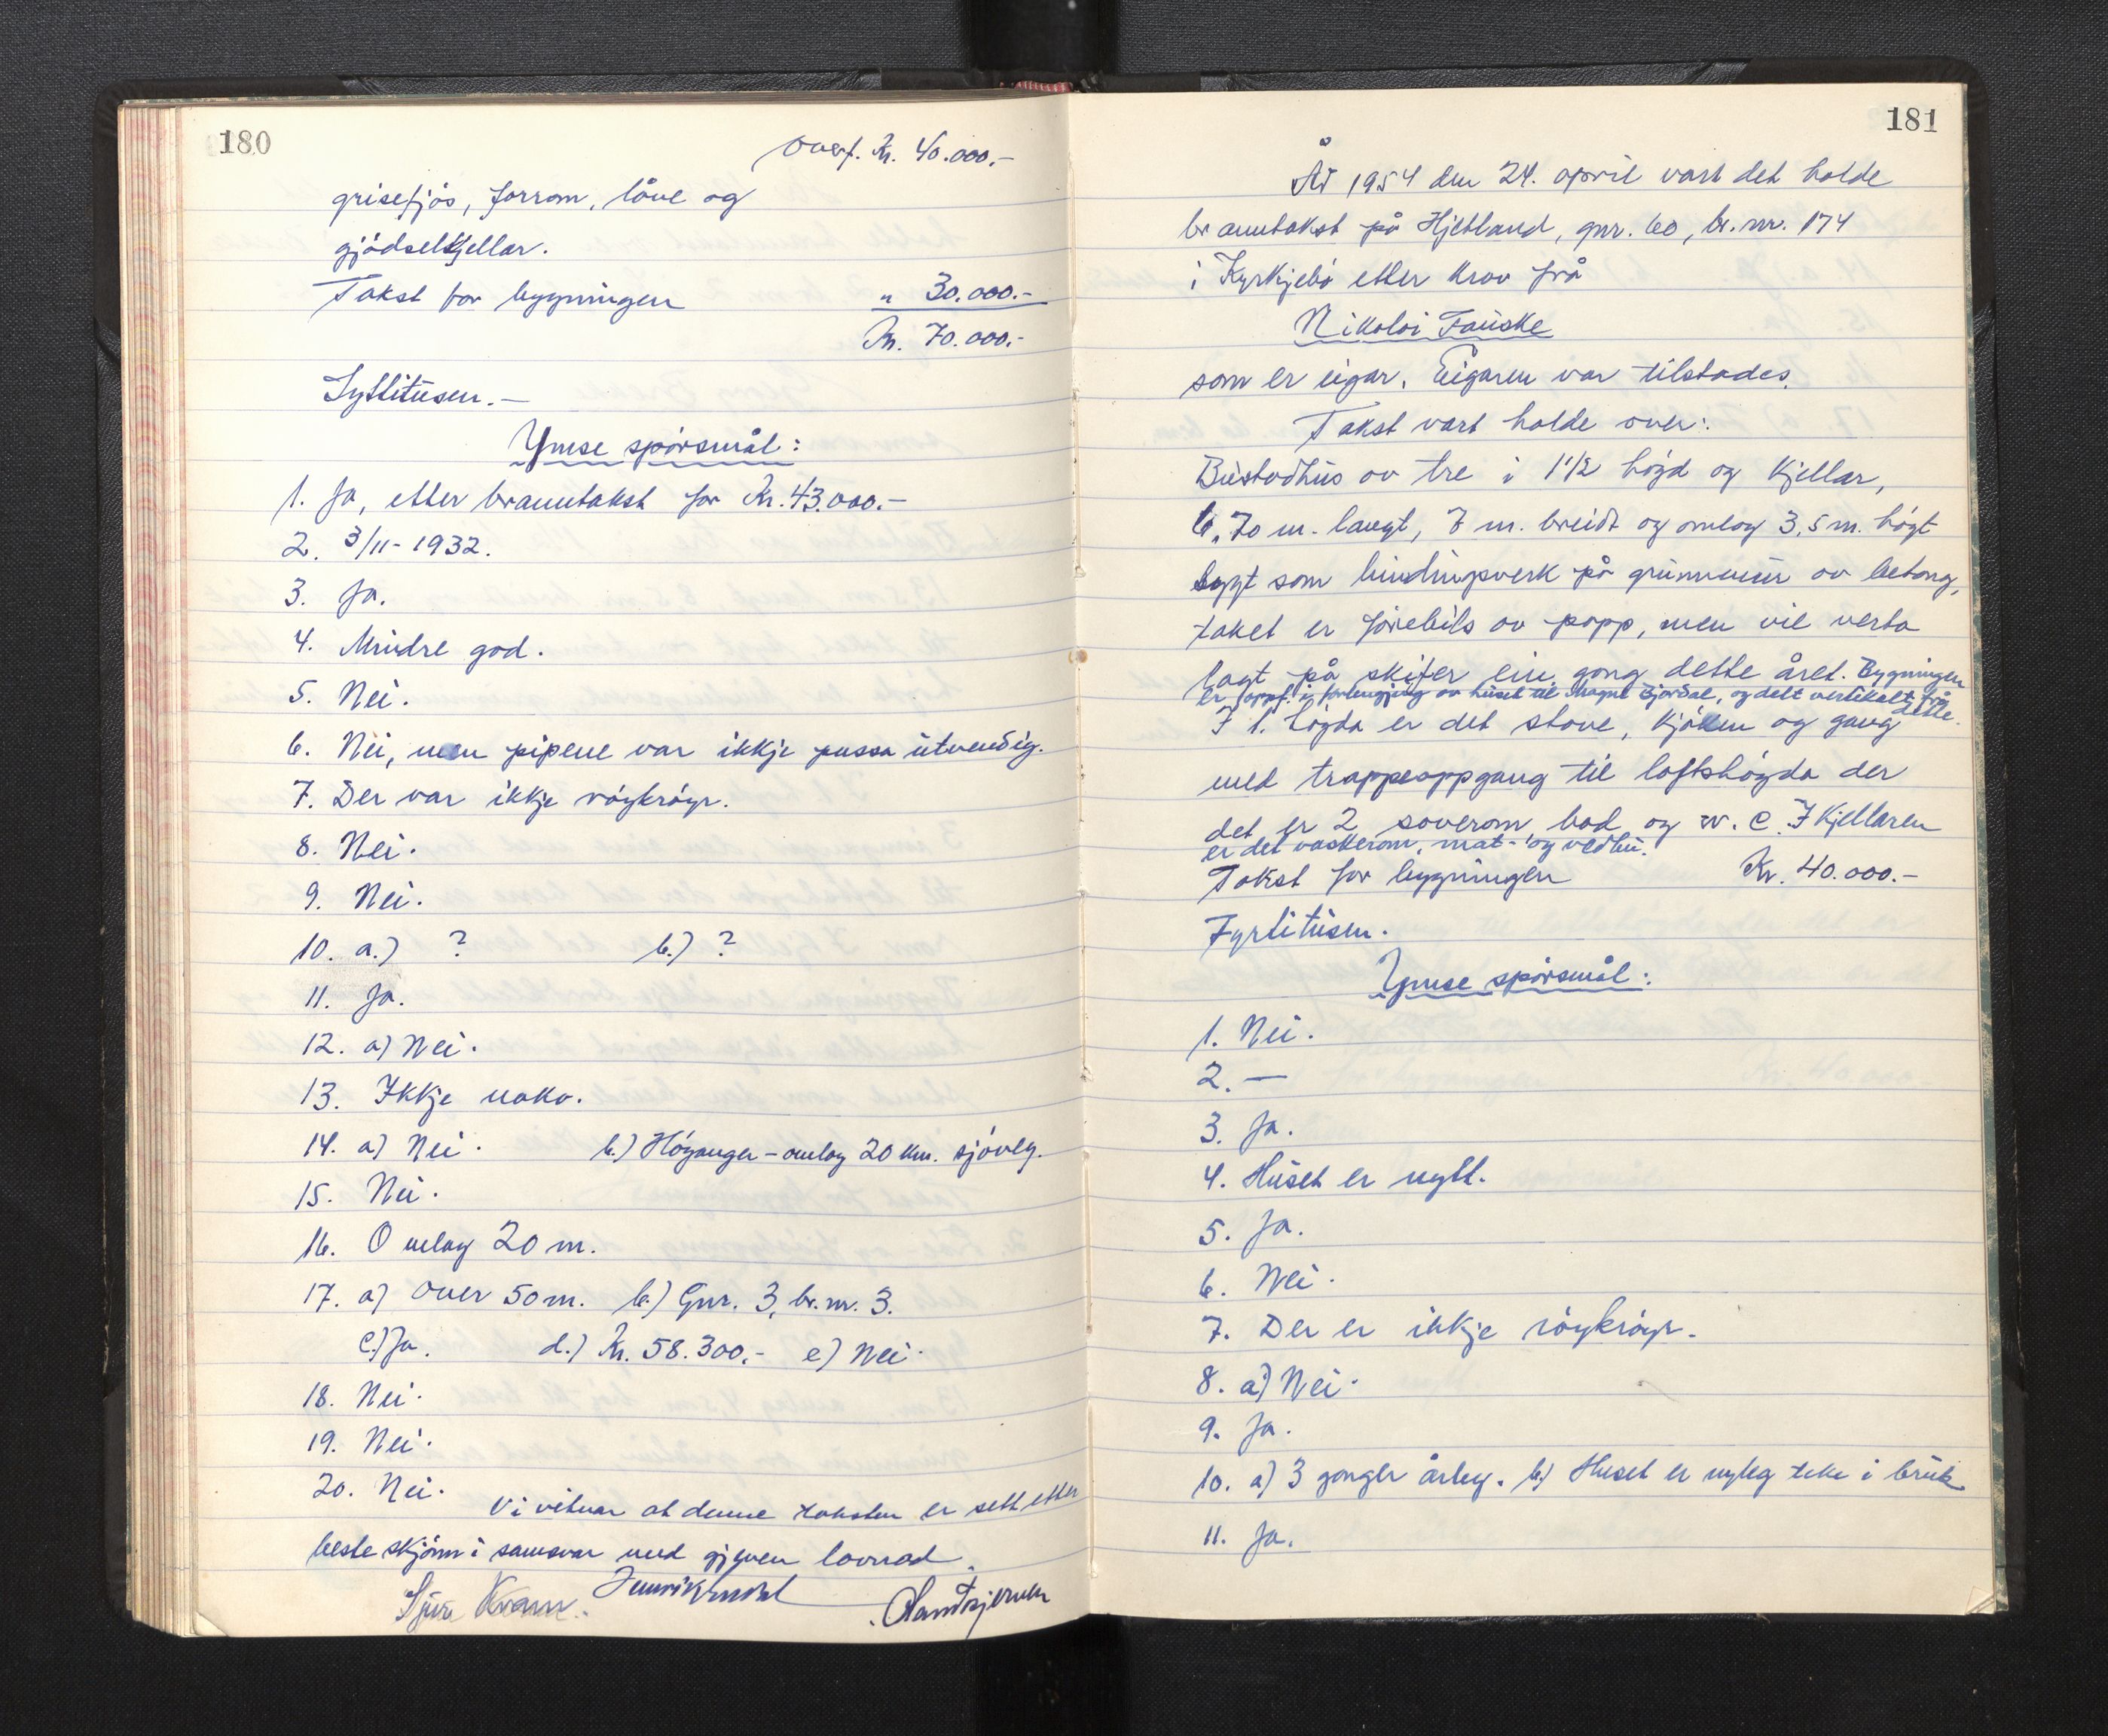 180
Overf. Kr. 40.000.-
grisefjøs, forrom, låve og
gjødselkjellar.
Takst for bygningen " 30.000.-
Kr. 70.000.-
Syttitusen.-
Ymse spørsmål:
1. Ja, etter branntakst for Kr. 43.000.-
2. 3/11-1932.
3. Ja.
4. Mindre god.
5. Nei.
6. Nei, men pipene var ikkje pussa utvendig.
7. Der var ikkje røykrøyr.
8. Nei.
9. Nei.
10. a.) ? b.) ?
11. Ja.
12. a) Nei.
13. Ikkje noko.
14. a) Nei. b.) Høyanger - omlag 20 km. sjøveg.
15. Nei.
16. Omlag 20 m.
17. a) Over 50 m. b.) Gnr. 3, br. nr. 3.
c.) Ja. d.) Kr. 58.300.- e) Nei.
18. Nei.
19. Nei.
20. Nei.
Vi vitnar at denne taksten er sett etter
beste skjønn i samsvar med gjeven lovnad.
Sjur Kvamme.
181
År 1954 den 24. april vart det halde
branntakst på Hjetland, gnr. 60, br. nr. 174
i Kyrkjebø etter krav frå
Nikolai Fauske
som er eigar. Eigaren var tilstades.
Takst vart halde over:
Bustadhus av tre i 1 1/2 høgd og kjellar,
6,70 m. langt, 7 m. breidt og omlag 3,5 m. høgt
bygt som bindingsverk på grunnmur av betong,
taket er førebils av papp, men vil verta
lagt på skifer ein gong dette året. Bygningen
er oppf. i forlenging av huset til Magne Bjordal, og delt vertikalt frå
dette.
I 1. høgda er det stove, kjøken og gang
med trappeoppgang til loftshøgda der
det er 2 soverom, bad og w.c. I kjellaren
er det vaskerom, mat- og vedbu.
Takst for bygningen Kr. 40.000.-
Fyrtitusen.
Ymse spørsmål:
1. Nei.
2. —
3. Ja.
4. Huset er nytt.
5. Ja.
6. Nei.
7. Der er ikkje røykrøyr.
8. a) Nei.
9. Ja.
10. a) 3 gonger årleg. b.) Huset er nyleg teke i bruk
11. Ja.